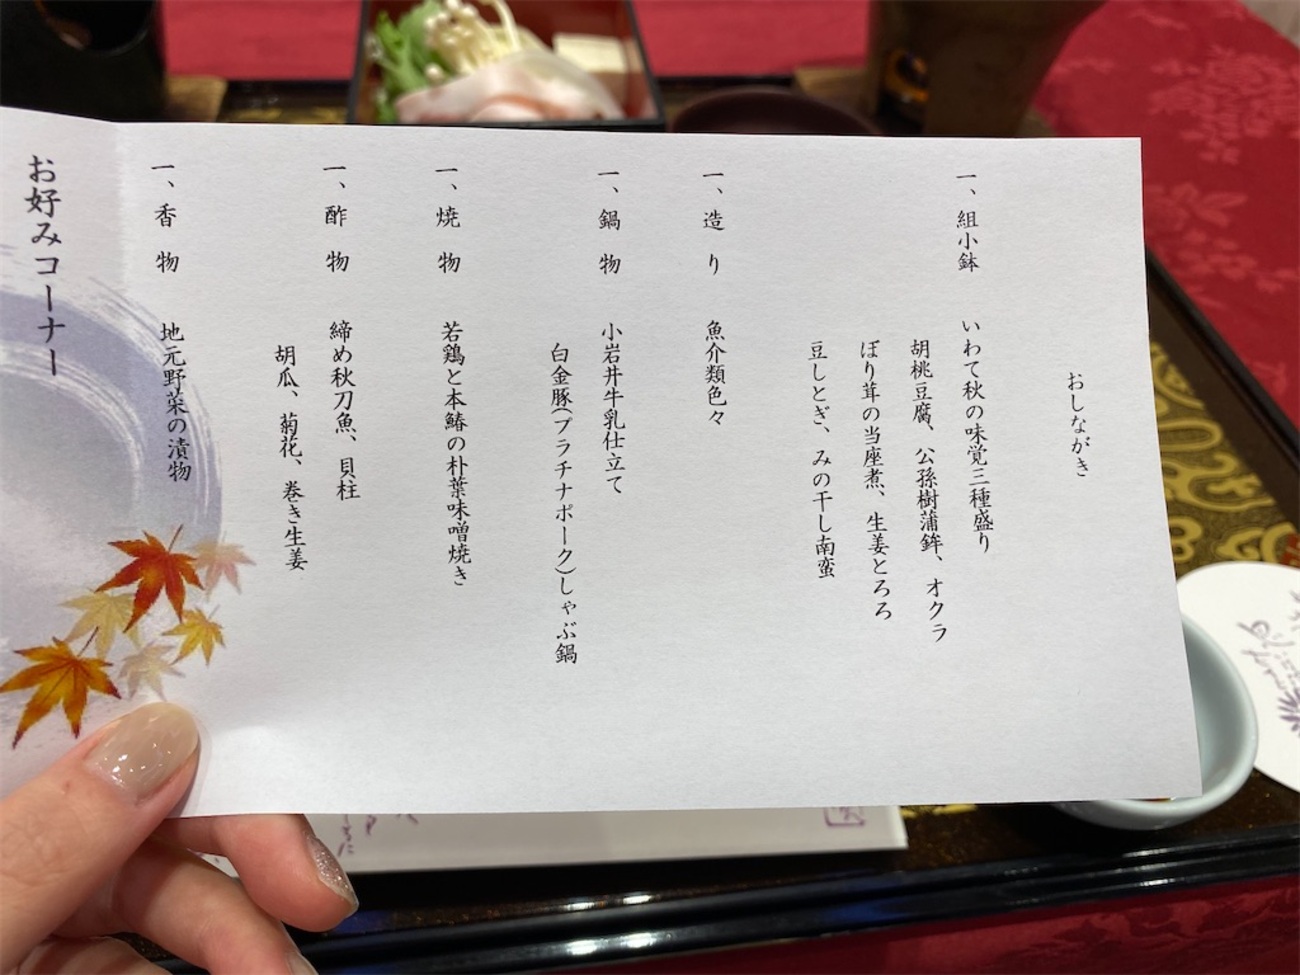 おしながき
一、組小鉢　いわて秋の味覚三種盛り
胡桃豆腐、公孫樹蒲鉾、オクラ
ぼり茸の当座煮、生姜とろろ
豆しとぎ、みの干し南蛮
一、造り　魚介類色々
一、鍋物　小岩井牛乳仕立て
白金豚(プラチナポーク)しゃぶ鍋
一、焼物　若鶏と本鰆の朴葉味噌焼き
一、酢物　締め秋刀魚、貝柱
胡瓜、菊花、巻き生姜
一、香物　地元野菜の漬物
お好みコーナー